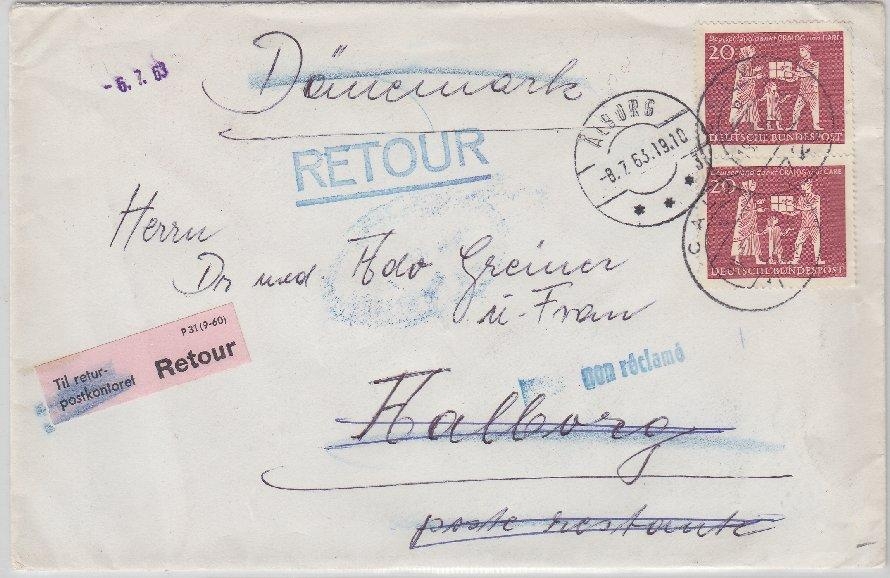 - 6. 7. 63
Dänemark
RETOUR
ÅLBORG
-8.7.63.19.10
* * *
20
Deutschland dankt CRALOG und CARE
DEUTSCHE BUNDESPOST
20
Deutschland dankt CRALOG und CARE
DEUTSCHE BUNDESPOST
Herrn
Dr med Ado Greiner
u. Frau
P 31 (9-60)
Til retur-
postkontoret
Retour
non réclamé
Aalborg
poste restante